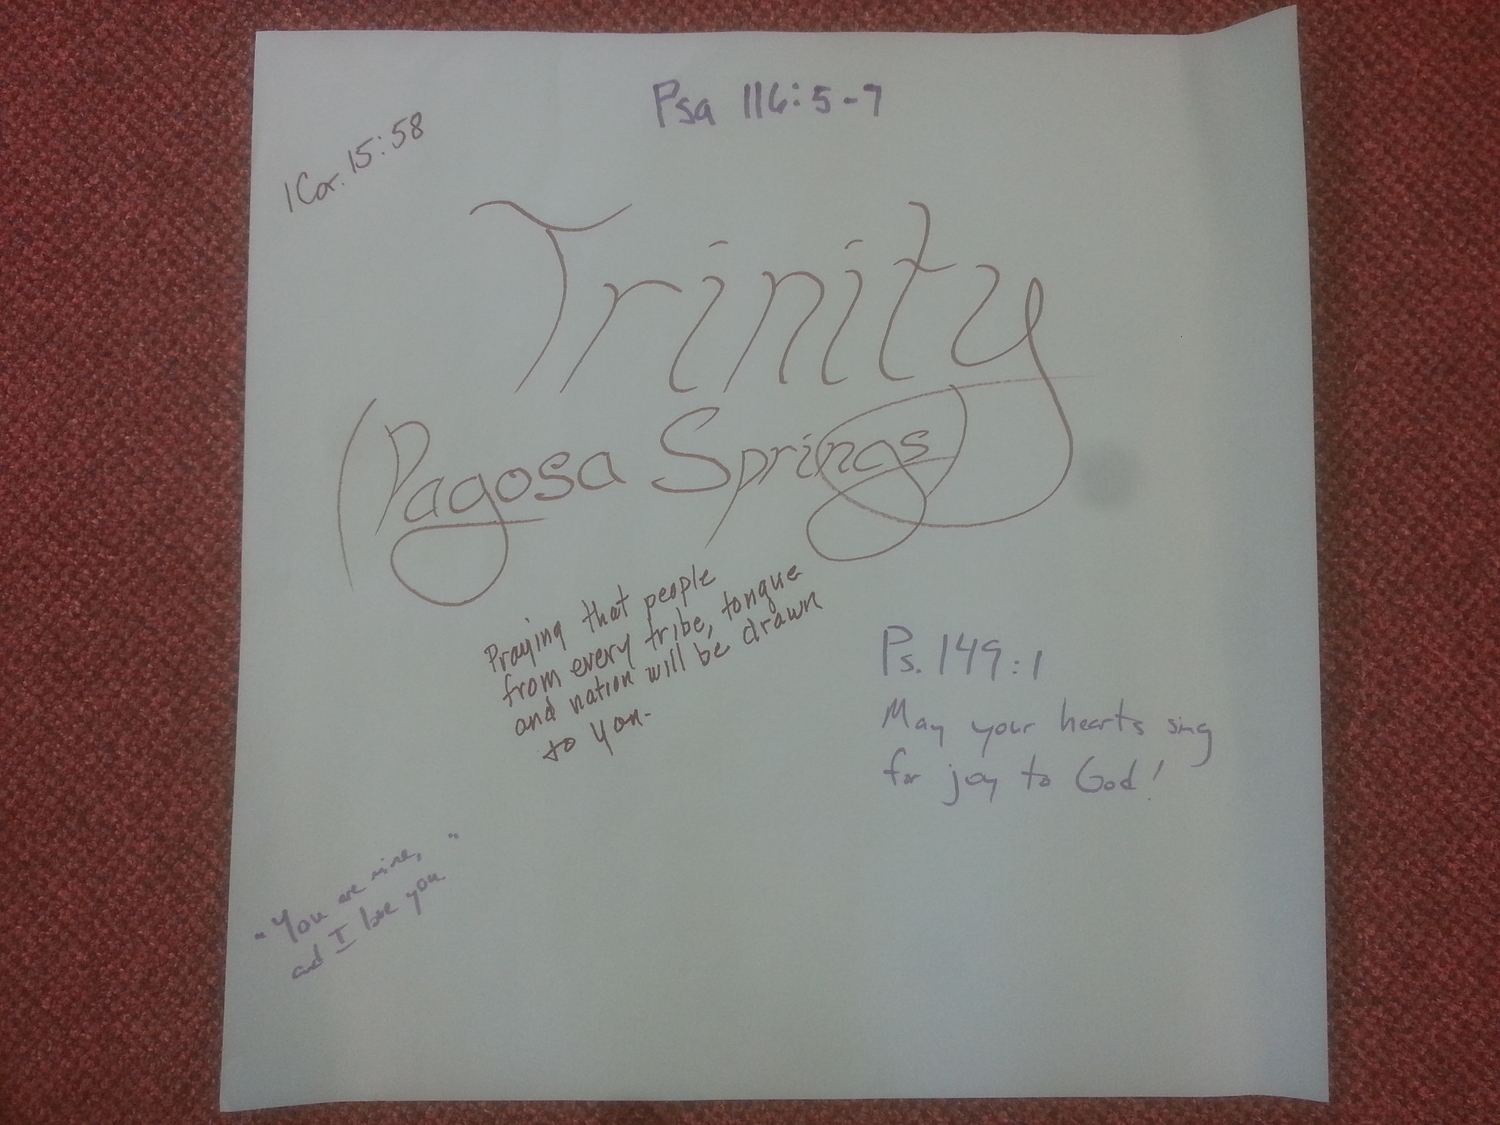 Psa 116:5-7
1 Cor. 15:58
Trinity
(Pagosa Springs)
Praying that people
from every tribe, tongue
and nation will be drawn
to You.
Ps. 149:1
May your hearts sing
for joy to God!
"You are mine,
and I love you"